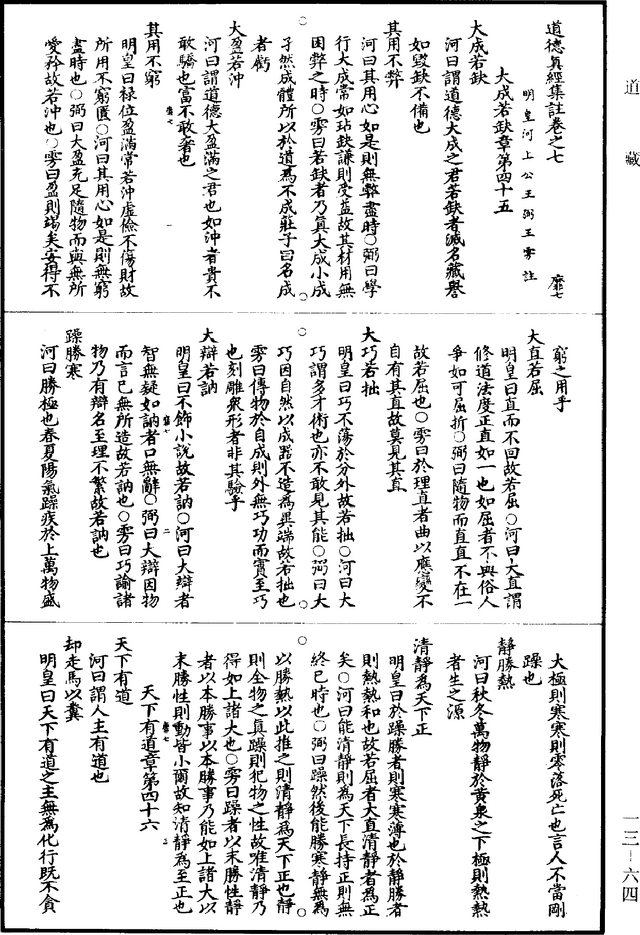 道藏
一三—六四
道德眞經集註卷之七
靡七
明皇河上公王弼王雱註
大成若缺章第四十五
大成若缺
河曰謂道德大成之君若缺者滅名藏譽
如毀缺不備也
其用不弊
河曰其用心如是則無弊盡時○弼曰學
行大成常如玷缺謙則受益故其材用無
困弊之時○雱曰若缺者乃眞大成小成
孑然成體所以於道爲不成莊子曰名成
者虧
大盈若沖
河曰謂道德大盈滿之君也如沖者貴不
敢驕也富不敢奢也
其用不窮
明皇曰祿位盈滿常若沖虛儉不傷財故
所用不窮匱○河曰其用心如是則無窮
盡時也○弼曰大盈充足隨物而與無所
愛矜故若沖也○雱曰盈則竭矣安得不
窮之用乎
大直若屈
明皇曰直而不回故若屈○河曰大直謂
修道法度正直如一也如屈者不與俗人
爭如可屈折○弼曰隨物而直直不在一
故若屈也○雱曰於理直者曲以應變不
自有其直故莫見其直
大巧若拙
明皇曰巧不蕩於分外故若拙○河曰大
巧謂多才術也亦不敢見其能○弼曰大
巧因自然以成器不造爲異端故若拙也
雱曰傳物於自成則外無巧功而實至巧
也刻雕衆形者非其驗乎
大辯若訥
明皇曰不飾小說故若訥○河曰大辯者
智無疑如訥者口無辭○弼曰大辯因物
而言已無所造故若訥也○雱曰巧諭諸
物乃有辯名至理不繁故若訥也
躁勝寒
河曰勝極也春夏陽氣躁疾於上萬物盛
大極則寒寒則零落死亡也言人不當剛
躁也
靜勝熱
河曰秋冬萬物靜於黃泉之下極則熱熱
者生之源
清靜爲天下正
明皇曰於躁勝者則寒寒薄也於靜勝者
則熱熱和也故若屈者大直清靜者爲正
矣○河曰能清靜則爲天下長持正則無
終已時也○弼曰躁然後能勝寒靜無爲
以勝熱以此推之則清靜爲天下正也靜
則全物之眞躁則犯物之性故唯清靜乃
得如上諸大也○雱曰躁者以末勝性靜
者以本勝事以本勝事乃能如上諸大以
末勝性則動皆小爾故知清靜爲至正也
天下有道章第四十六
天下有道
河曰謂人主有道也
却走馬以糞
明皇曰天下有道之主無爲化行既不貪